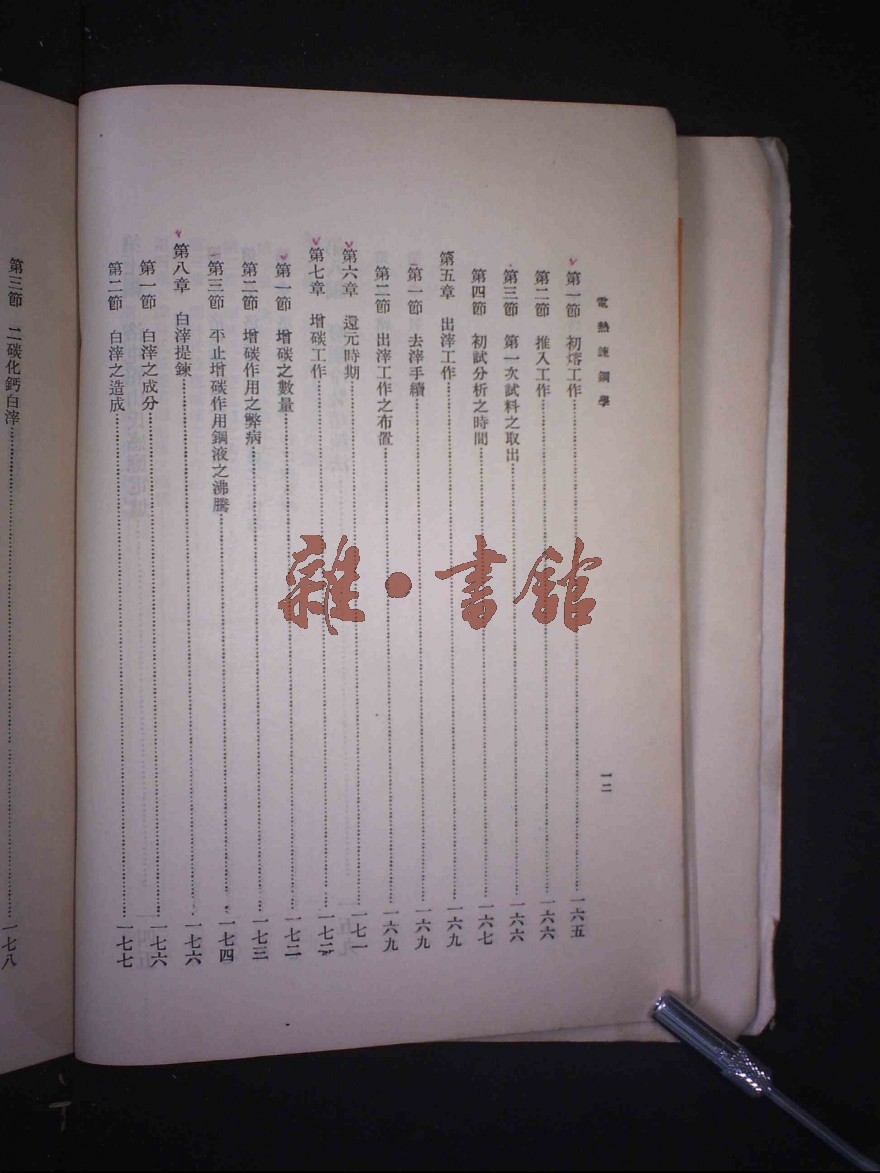 電熱諫鋼學
一二
第一節 初熔工作 一六五
第二節 推入工作 一六六
第三節 第一次試料之取出 一六六
第四節 初試分析之時間 一六七
第五章 出滓工作 一六九
第一節 去滓手續 一六九
第二節 出滓工作之布置 一六九
第六章 還元時期 一七一
第七章 增碳工作 一七二
第一節 增碳之數量 一七二
第二節 增碳作用之弊病 一七三
第三節 平止增碳作用鋼液之沸騰 一七四
第八章 白滓提鍊 一七六
第一節 白滓之成分 一七六
第二節 白滓之造成 一七七
第三節 二碳化鈣白滓 一七八
雜·書館